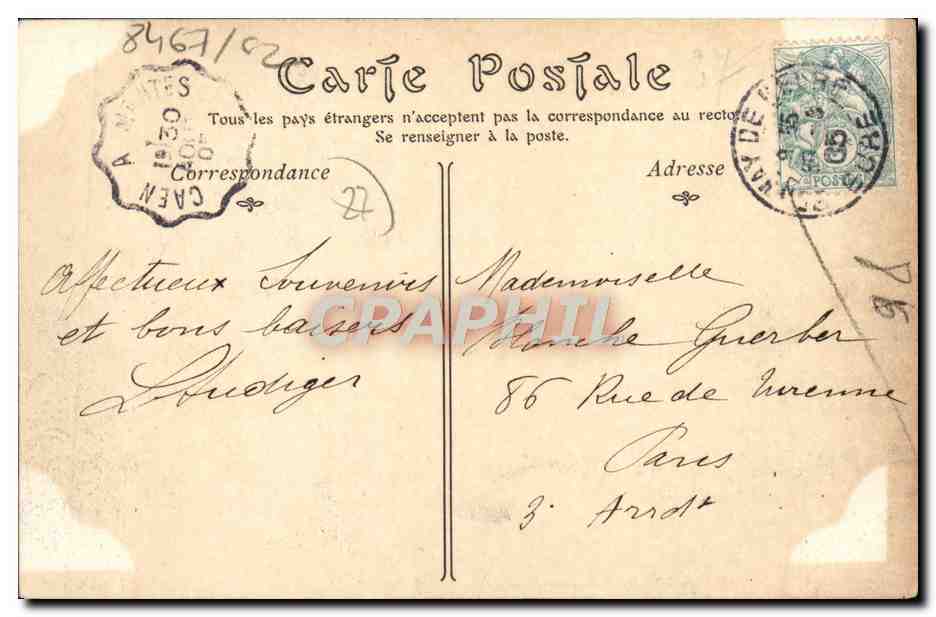 8467/02
Carte Postale
Tous les pays étrangers n'acceptent pas la correspondance au recto
Se renseigner à la poste.
CAEN A MANTES
1E 30
Correspondance
Adresse
27
POST
05
Affectueux Souvenirs
et bons baisers
LAudiger
Mademoiselle
Blanche Guerber
86 Rue de Turenne
Paris
3. Arrdt
CPAPHIL